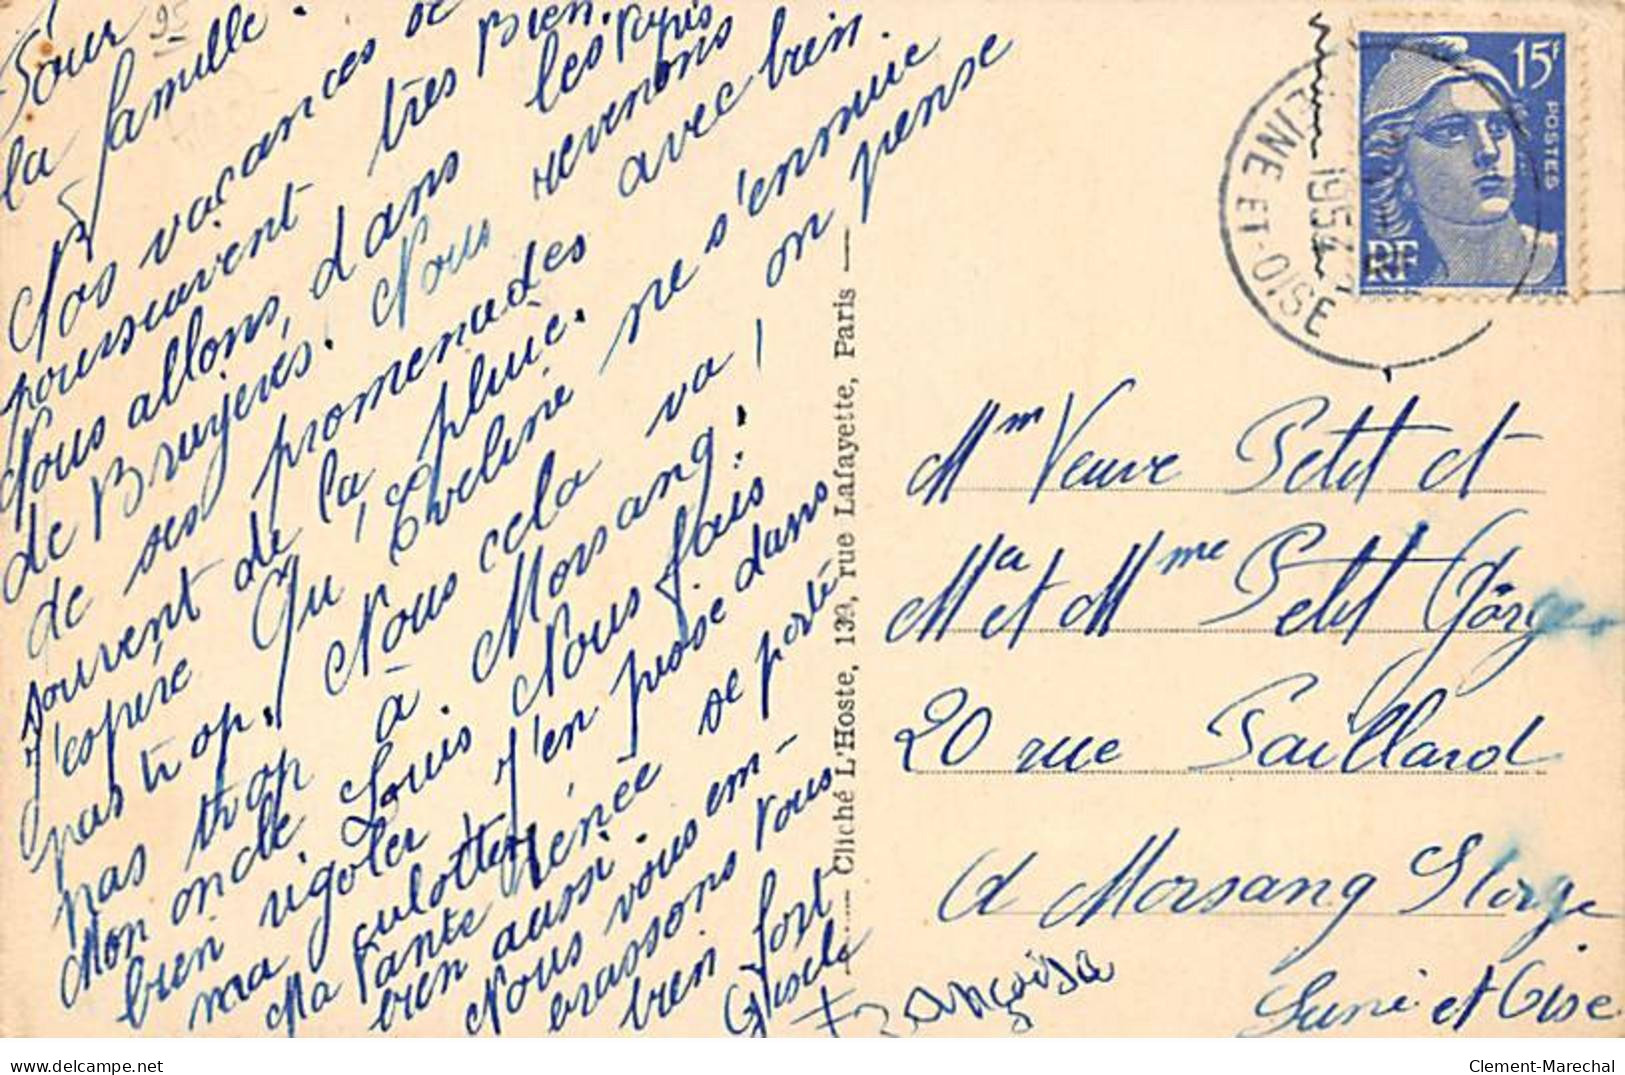 Pour
la famille.
Nos vacances se
poursuivent très bien.
Nous allons, dans les
de Bruyères. Nous revenons
de ses promenades avec bien
souvent de la pluie.
J'espère Qu'Eveline ne s'ennuie
pas trop. Nous cela va! on pense
pas trop à Morsang!
Mon oncle Louis Nous fais
bien rigoler J'en prose dans
ma culotte,
Ma Tante Renée se porte
bien aussi.
Nous vous em-
brassons tous
bien fort
Gisele
Françoise
Cliché L'Hoste, 139, rue Lafayette, Paris
SEINE ET OISE
1954
15F
POSTES
RF
Mm Veuve Petit et
Mr et Mme Petit
20 rue Paillard
à Morsang S/Orge
Seine et Oise
www.delcampe.net
Clement-Marechal